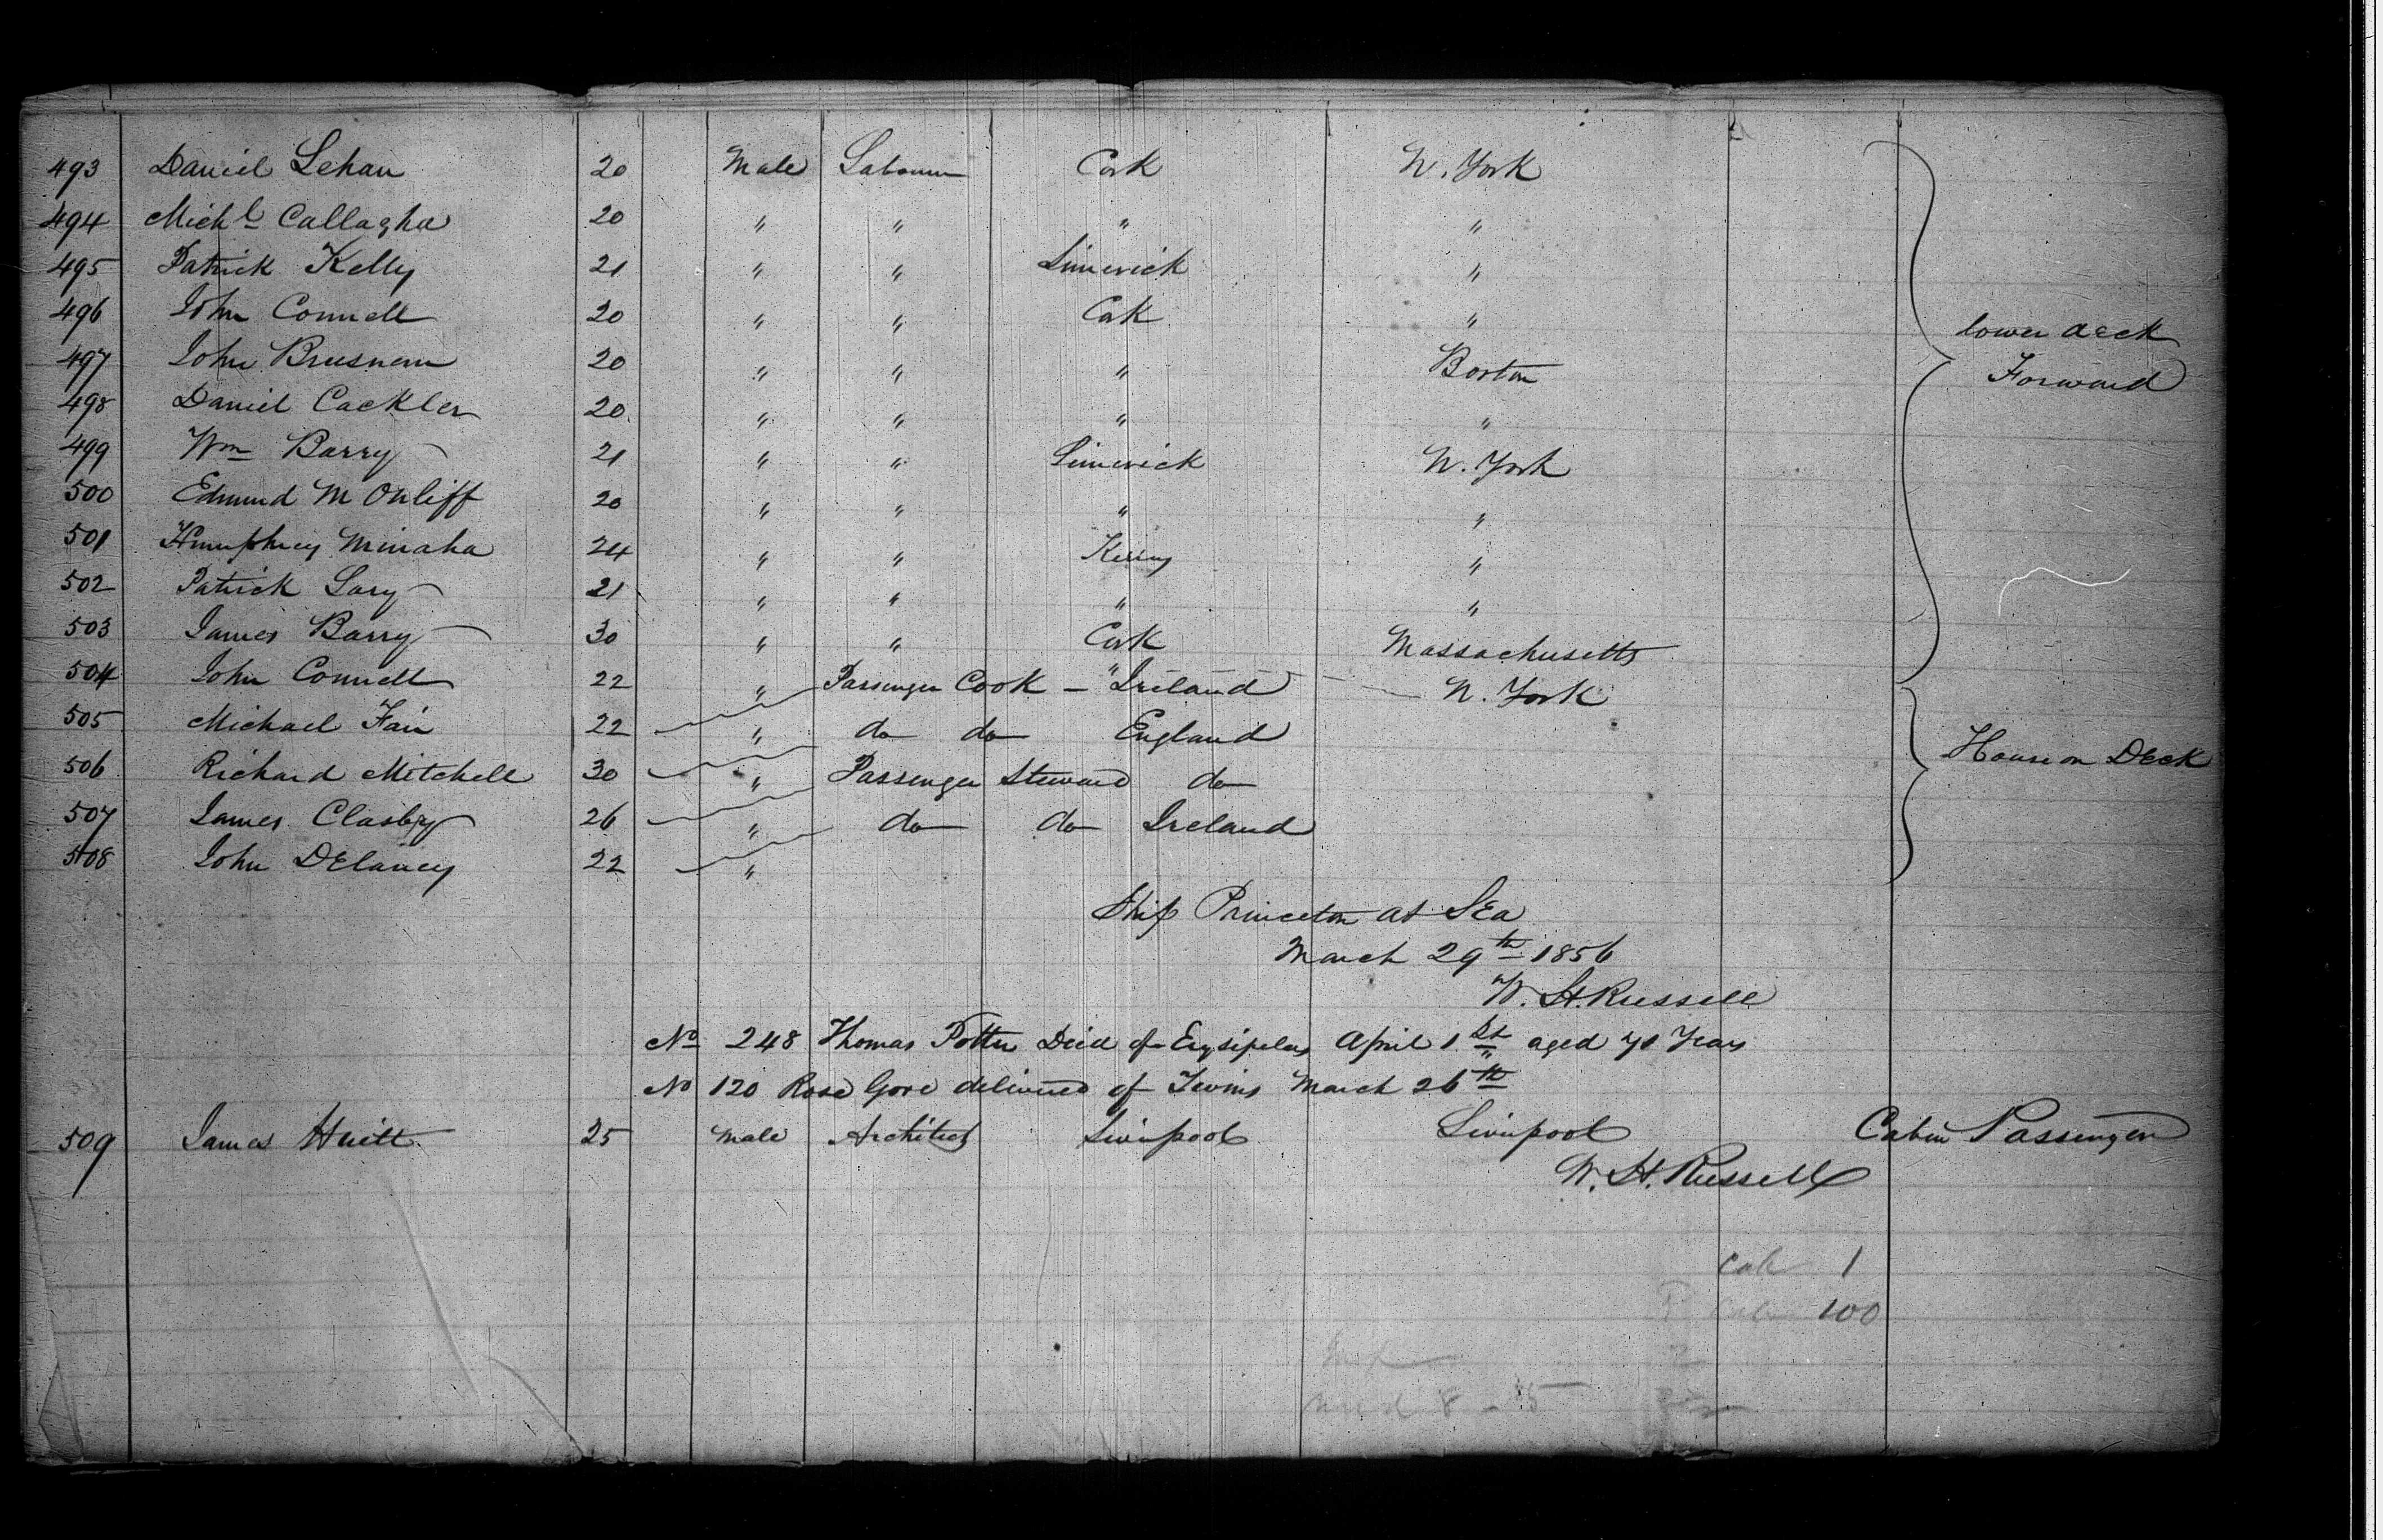 493 Daniel Lehan 20 Male Labourer Cork N. York
494 Michl Callagha 20 " " " "
495 Patrick Kelly 21 " " Limerick "
496 John Connell 20 " " Cork "
lower deck
497 John Brusnem 20 " " " Boston
Forward
498 Daniel Cackler 20 " " " "
499 Wm Barry 21 " " Limerick N. York
500 Edmund M Onliff 20 " " " "
501 Humphrey Minaha 24 " " Kerry "
502 Patrick Lary 21 " " " "
503 James Barry 30 " " Cork Massachusetts
504 John Connell 22 " Passenger Cook - " Ireland N. York
505 Michael Fair 22 " do do England
House on Deck
506 Richard Mitchell 30 " Passenger Steward do
507 James Clasby 26 " do do Ireland
508 John Delaney 22 "
Ship Princeton at Sea
March 29th 1856
W. H. Russell
No 248 Thomas Potter Died of Erysipelas April 1st aged 71 Years
No 120 Rose Gore delivered of Twins March 26th
509 James Huitt 25 Male Architect Liverpool Liverpool Cabin Passenger
W. H. Russell
Cab 1
100